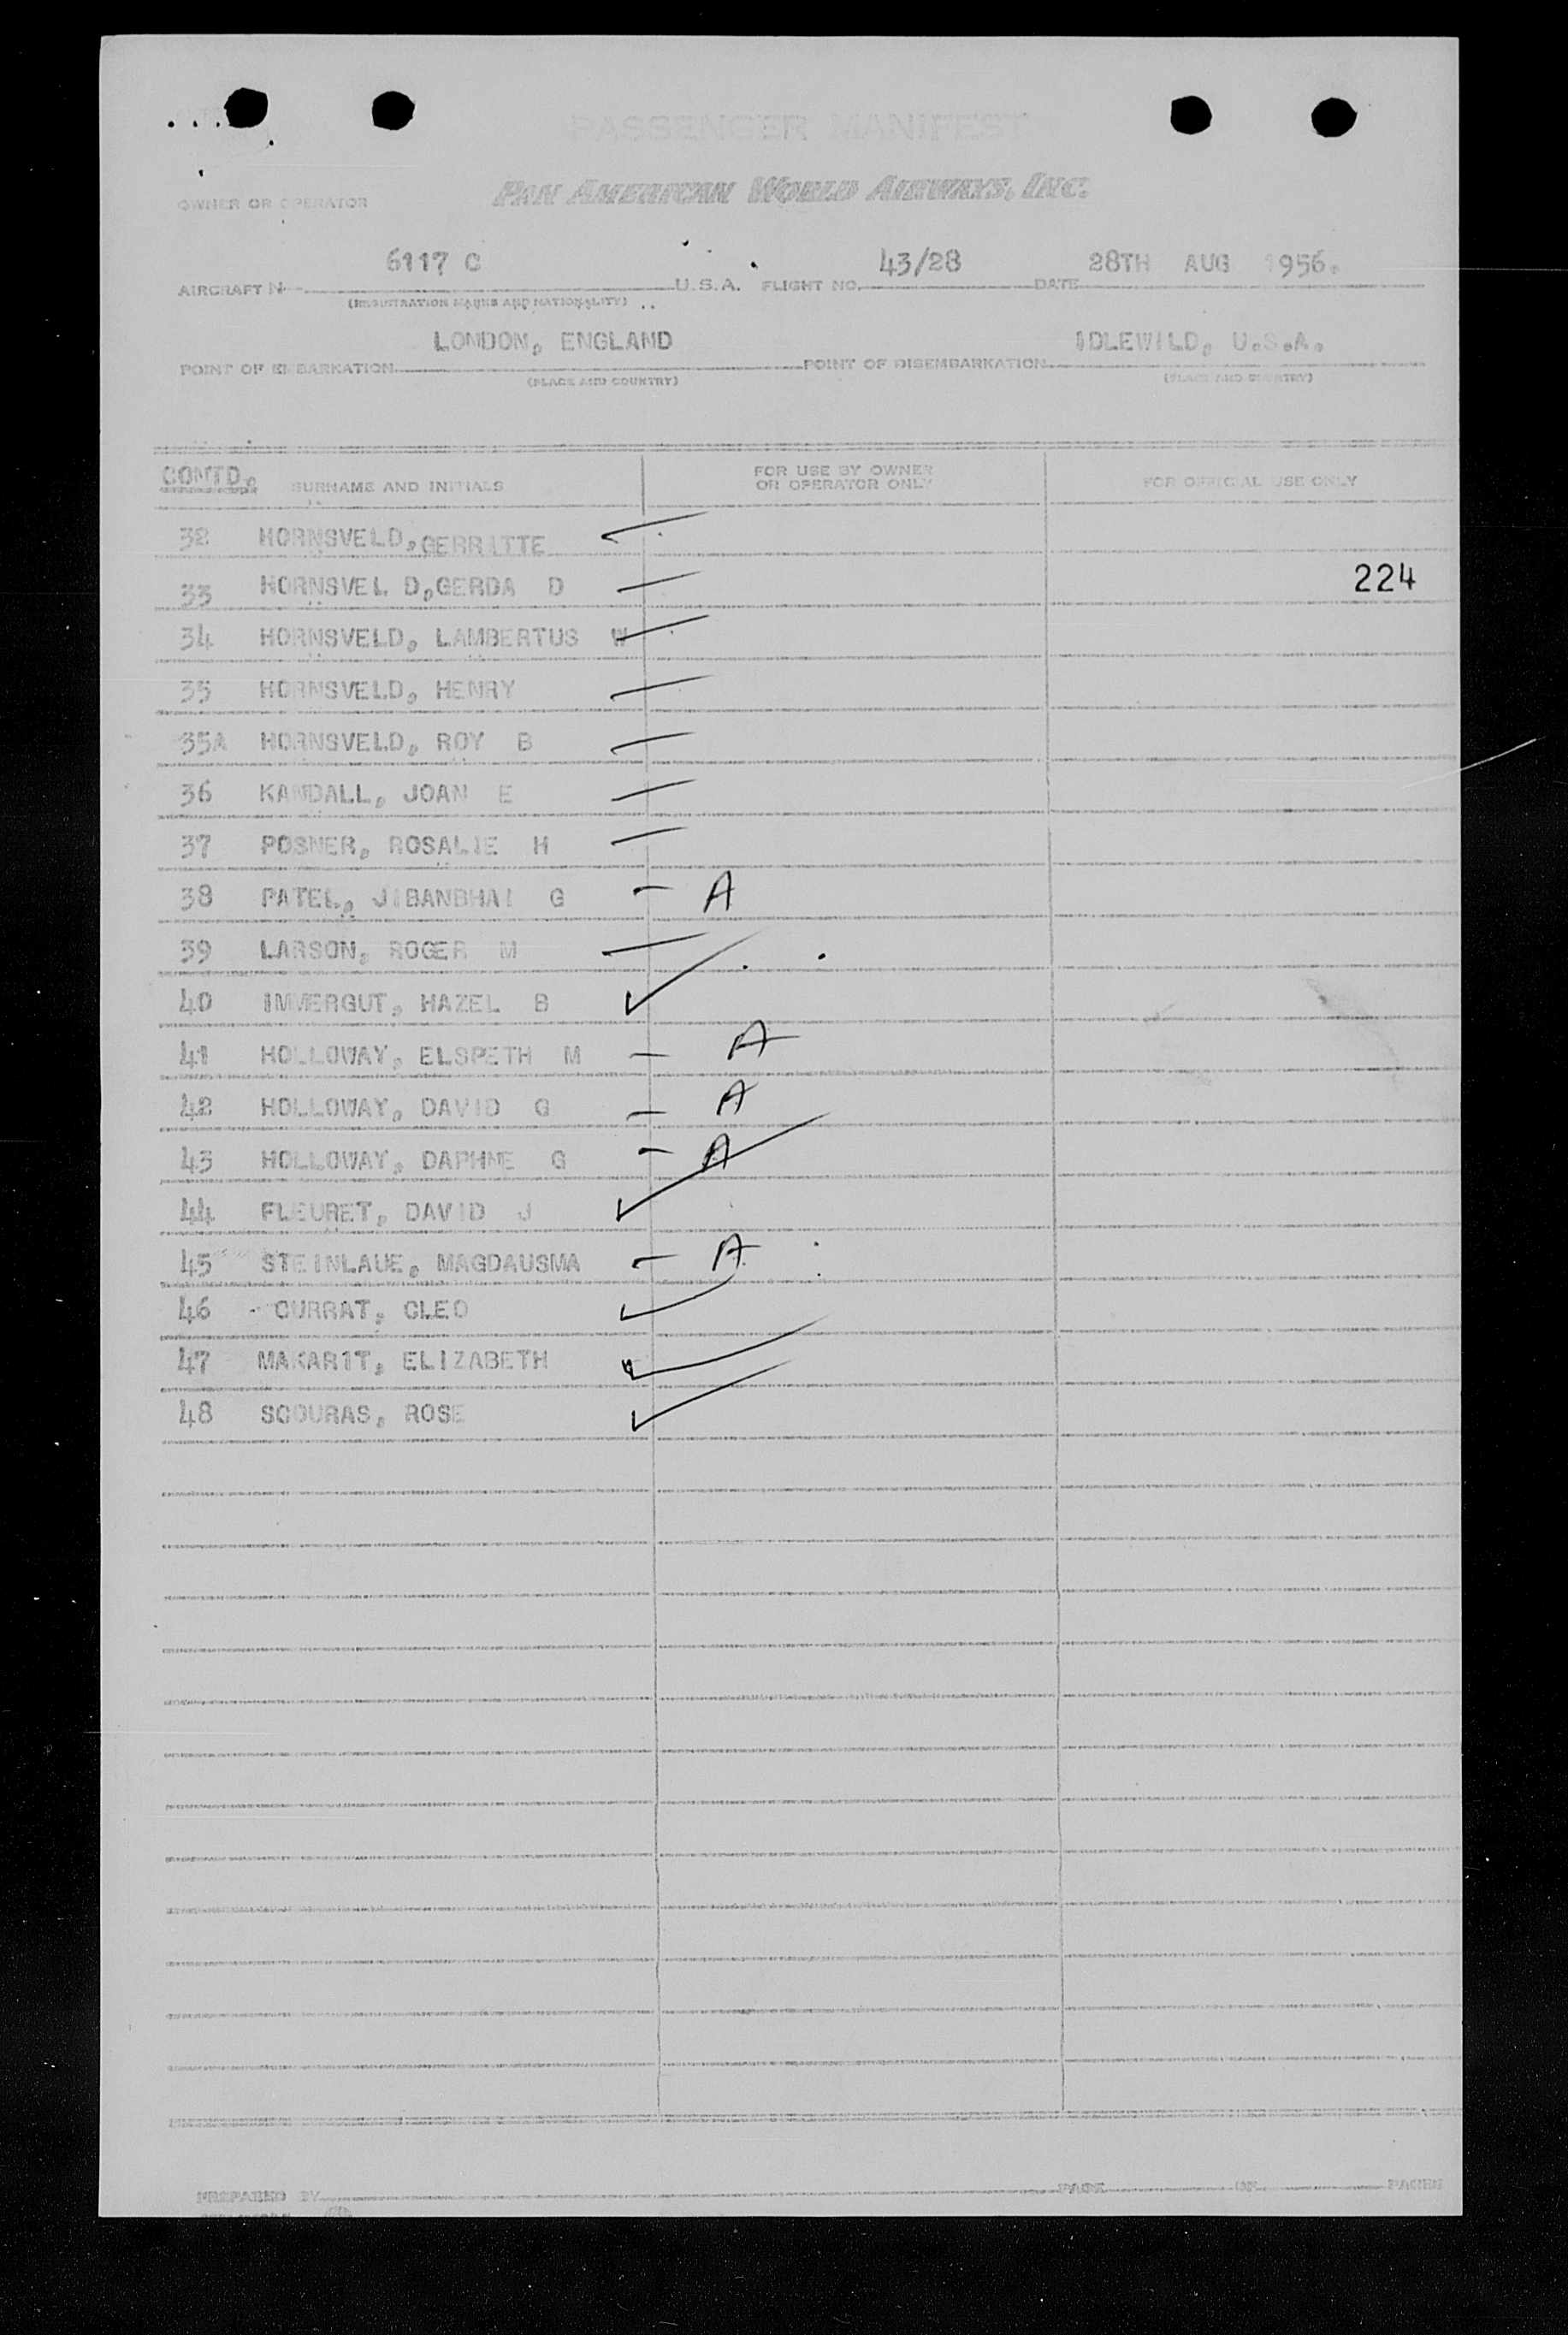 PASSENGER MANIFEST
PAN AMERICAN WORLD AIRWAYS, INC.
OWNER OR OPERATOR
6117 C 43/28 28TH AUG 1956.
AIRCRAFT N U.S.A. FLIGHT NO. DATE
(REGISTRATION MARKS AND NATIONALITY)
LONDON, ENGLAND IDLEWILD, U.S.A.
POINT OF EMBARKATION POINT OF DISEMBARKATION
(PLACE AND COUNTRY) (PLACE AND COUNTRY)
CONTD. SURNAME AND INITIALS FOR USE BY OWNER OR OPERATOR ONLY FOR OFFICIAL USE ONLY
32 HORNSVELD, GERRITTE
33 HORNSVEL D, GERDA D 224
34 HORNSVELD, LAMBERTUS W
35 HORNSVELD, HENRY
35A HORNSVELD, ROY B
36 KANDALL, JOAN E
37 POSNER, ROSALIE H
38 PATEL, JIBANBHAI G A
39 LARSON, ROGER M
40 IMMERGUT, HAZEL B
41 HOLLOWAY, ELSPETH M A
42 HOLLOWAY, DAVID G A
43 HOLLOWAY, DAPHNE G A
44 FLEURET, DAVID J
45 STEINLAUE, MAGDAUSMA A
46 CURRAT, CLEO
47 MAKARIT, ELIZABETH
48 SCOURAS, ROSE
PREPARED BY PAGE OF PAGES